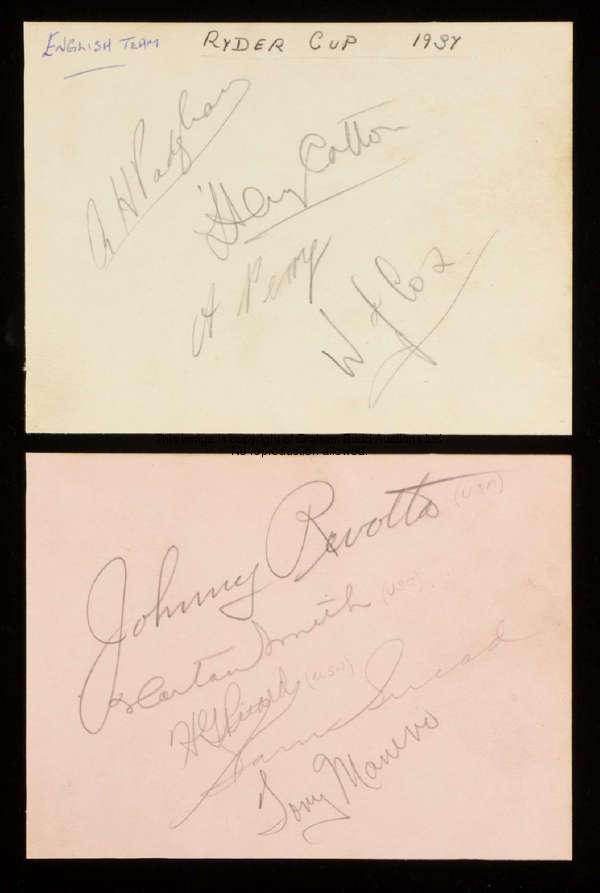 ENGLISH TEAM RYDER CUP 1937
A H Padgham
Henry Cotton
A Perry
W J Cox
This image is copyright of Graham Budd Auctions Ltd
No reproduction allowed.
Johnny Revolta (USA)
Horton Smith (USA)
H G Picard (USA)
Sam Snead
Tony Manero